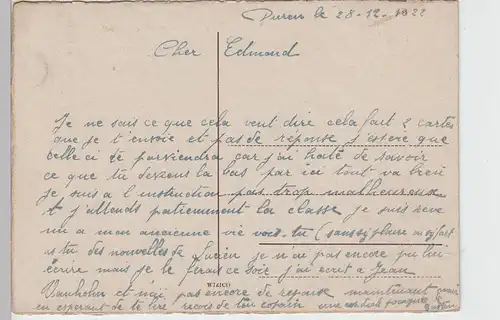 Duren le 28-12-1922
Cher Edmond
Je ne sais ce que cela veut dire cela fait 2 cartes
que je t'envoie et pas de réponse j'espère que
celle ci te parviendra car j'ai hâte de savoir
ce que tu deviens la bas par ici tout va bien
je suis a l'instruction pas trop malheureuse
t j'attends patiemment la classe je suis reve
nu a mon ancienne vie vois-tu (sans
as tu des nouvelles de Lucien je n'ai pas encore pu lui
écrire mais je le ferais ce soir j'ai écrit a Jean
W741CO
Vanholm et n'ai pas encore de réponse maintenant
en esperant de te lire recois de ton copain une cordiale poignée de
Gaston